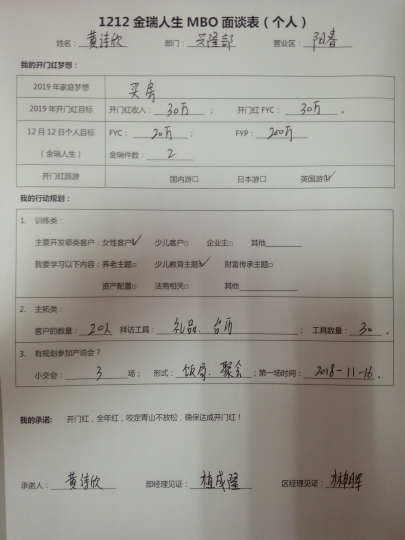 1212 金瑞人生 MBO 面谈表（个人）
姓名：黄诗欣 部门：兴隆部 营业区：阳春
我的开门红梦想：
2019 年家庭梦想 买房
2019 年开门红目标 开门红收入：30万； 开门红 FYC：30万.
12 月 12 日个人目标 FYC：20万； FYP：200万
（金瑞人生） 金瑞件数：2
开门红旅游 国内游□ 日本游□ 英国游☑
我的行动规划：
1. 训练类：
主要开发哪类客户：女性客户☑ 少儿客户□ 企业主□ 其他
我要学习以下内容：养老主题□ 少儿教育主题☑ 财富传承主题□
资产配置□ 法商相关□ 其他
2. 主拓类：
客户的数量：20人 拜访工具：礼品、台历； 工具数量：30.
3. 有规划参加产说会？
小交会：3 场； 形式：饭局、聚会；第一场时间：2018-11-16.
我的承诺： 开门红，全年红，咬定青山不放松，确保达成开门红！
承诺人：黄诗欣 部经理见证：植成隆 区经理见证：